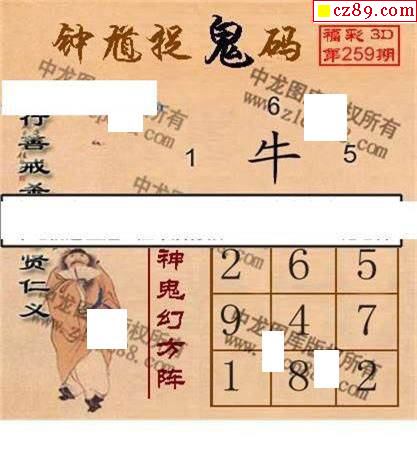 cz89.com
钟馗捉鬼码
福彩 3D
第259期
6
1 牛 5
行善戒杀
贤仁义
神鬼幻方阵
2 6 5
9 4 7
1 8 2
中龙图库版权所有